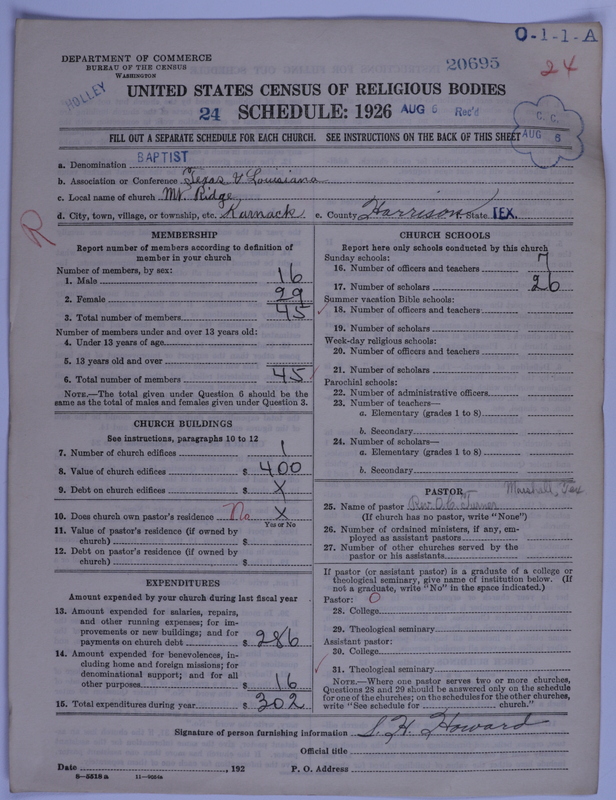 O-1-1-A
DEPARTMENT OF COMMERCE
BUREAU OF THE CENSUS
WASHINGTON
20695
24
HOLLEY
UNITED STATES CENSUS OF RELIGIOUS BODIES
24 SCHEDULE: 1926 AUG 6 Rec'd
C. C.
AUG 6
FILL OUT A SEPARATE SCHEDULE FOR EACH CHURCH. SEE INSTRUCTIONS ON THE BACK OF THIS SHEET
a. Denomination BAPTIST
b. Association or Conference Texas & Louisiana
c. Local name of church Mt. Ridge
d. City, town, village, or township, etc. Karnack e. County Harrison State TEX.
R
MEMBERSHIP
Report number of members according to definition of
member in your church
Number of members, by sex:
1. Male 16
2. Female 29
3. Total number of members 45
Number of members under and over 13 years old:
4. Under 13 years of age
5. 13 years old and over
6. Total number of members 45
NOTE.—The total given under Question 6 should be the
same as the total of males and females given under Question 3.
CHURCH BUILDINGS
See instructions, paragraphs 10 to 12
7. Number of church edifices 1
8. Value of church edifices $ 400
9. Debt on church edifices $ X
10. Does church own pastor's residence No X
Yes or No
11. Value of pastor's residence (if owned by
church) $
12. Debt on pastor's residence (if owned by
church) $
EXPENDITURES
Amount expended by your church during last fiscal year
13. Amount expended for salaries, repairs,
and other running expenses; for im-
provements or new buildings; and for
payments on church debt $ 286
14. Amount expended for benevolences, in-
cluding home and foreign missions; for
denominational support; and for all
other purposes $ 16
15. Total expenditures during year $ 302
CHURCH SCHOOLS
Report here only schools conducted by this church
Sunday schools:
16. Number of officers and teachers 7
17. Number of scholars 26
Summer vacation Bible schools:
18. Number of officers and teachers
19. Number of scholars
Week-day religious schools:
20. Number of officers and teachers
21. Number of scholars
Parochial schools:
22. Number of administrative officers
23. Number of teachers—
a. Elementary (grades 1 to 8)
b. Secondary
24. Number of scholars—
a. Elementary (grades 1 to 8)
b. Secondary
PASTOR Marshall, Tex
25. Name of pastor Rev. O. C. Turner
(If church has no pastor, write "None")
26. Number of ordained ministers, if any, em-
ployed as assistant pastors
27. Number of other churches served by the
pastor or his assistants
If pastor (or assistant pastor) is a graduate of a college or
theological seminary, give name of institution below. (If
not a graduate, write "No" in the space indicated.)
Pastor: 0
28. College
29. Theological seminary
Assistant pastor:
30. College
31. Theological seminary
NOTE.—Where one pastor serves two or more churches,
Questions 28 and 29 should be answered only on the schedule
for one of the churches; on the schedules for the other churches,
write "See schedule for church."
Signature of person furnishing information S. H. Howard
Official title
Date , 192 P. O. Address
8—5518 a 11—9054a